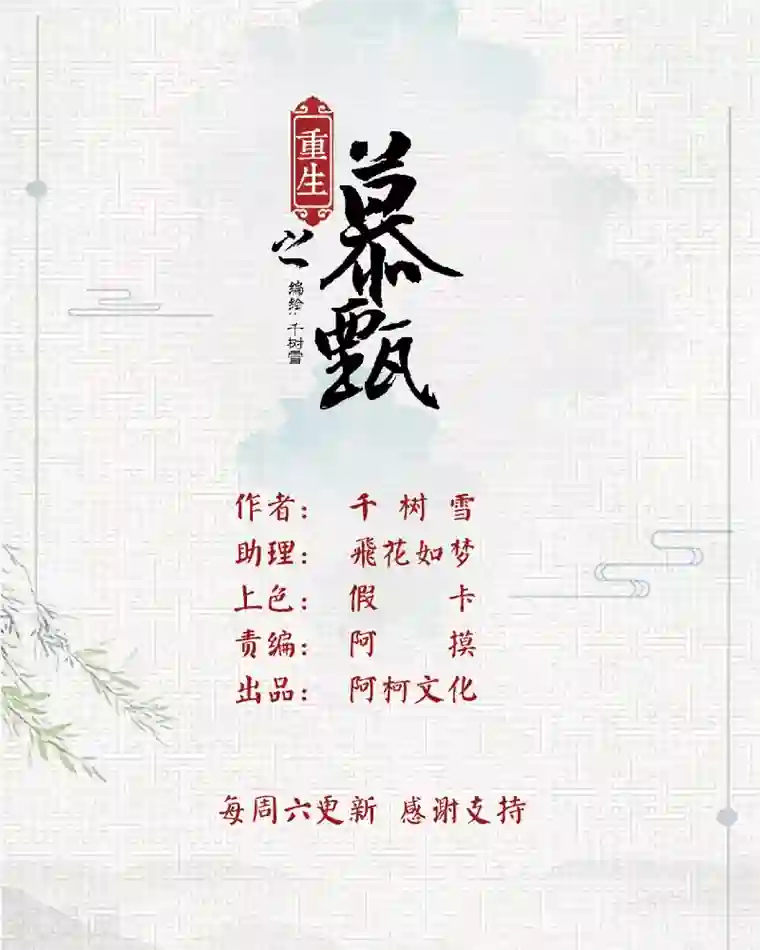 重生
之
慕甄
编绘：千树雪
作者： 千树雪
助理： 飛花如梦
上色： 假卡
责编： 阿摸
出品： 阿柯文化
每周六更新 感谢支持